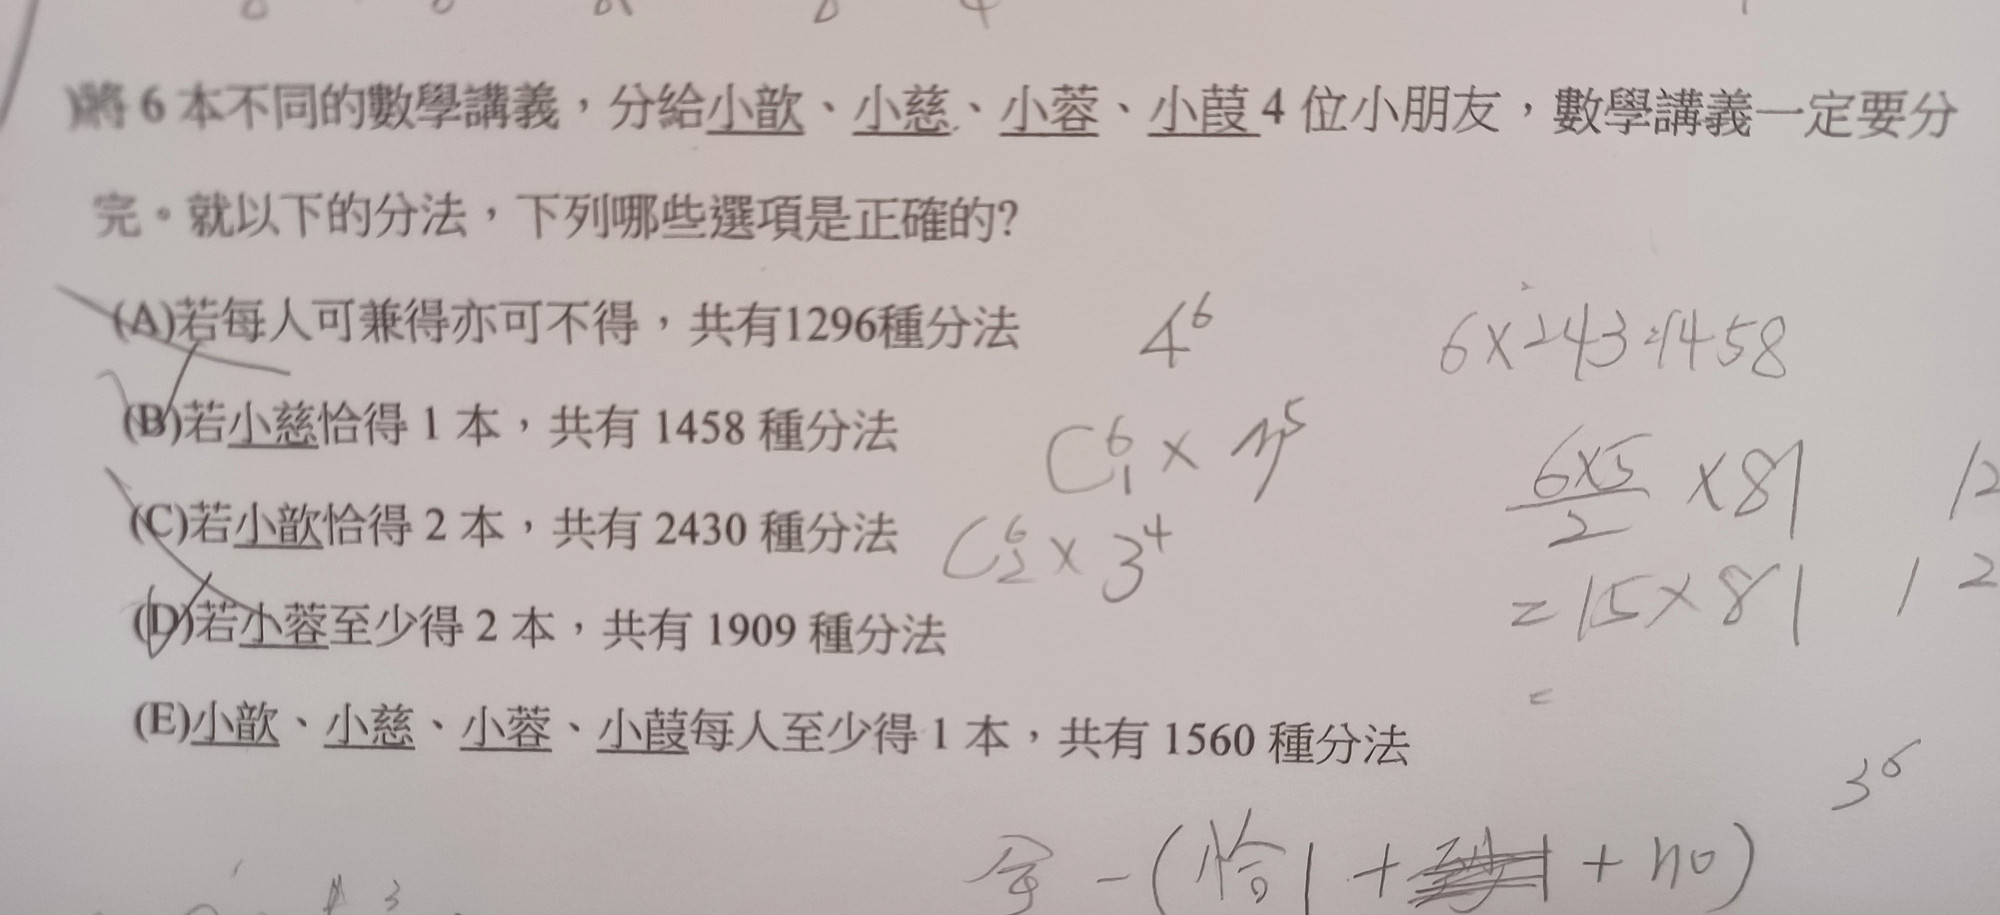 將 6 本不同的數學講義，分給小歆、小慈、小蓉、小葭 4 位小朋友，數學講義一定要分
完。就以下的分法，下列哪些選項是正確的?
(A)若每人可兼得亦可不得，共有1296種分法
4⁶
6×243=1458
(B)若小慈恰得 1 本，共有 1458 種分法
C⁶₁ ×
6×5/2 ×81
(C)若小歆恰得 2 本，共有 2430 種分法
C⁶₂ × 3⁴
=15×81
(D)若小蓉至少得 2 本，共有 1909 種分法
=
(E)小歆、小慈、小蓉、小葭每人至少得 1 本，共有 1560 種分法
3⁶
全 - (恰1 + + no)